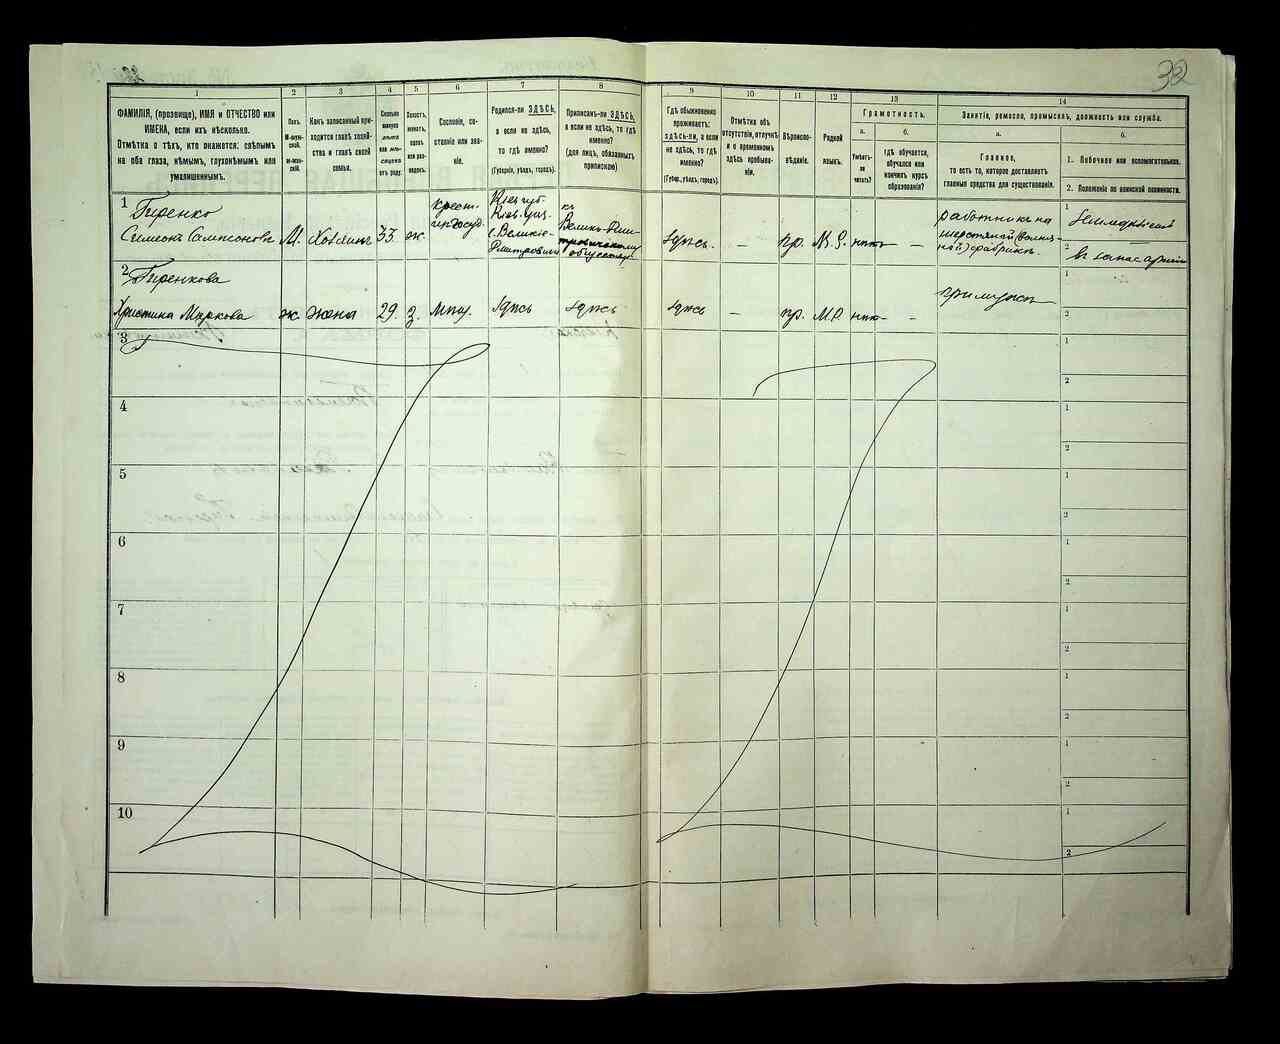 32
1
2
3
4
5
6
7
8
9
10
11
12
13
14
ФАМИЛІЯ, (прозвище), ИМЯ и ОТЧЕСТВО или
ИМЕНА, если ихъ нѣсколько.
Отмѣтка о тѣхъ, кто окажется: слѣпымъ
на оба глаза, нѣмымъ, глухонѣмымъ или
умалишеннымъ.
Полъ.
М-муж-
ской.
Ж-жен-
скій.
Какъ записанный при-
ходится главѣ хозяй-
ства и главѣ своей
семьи.
Сколько
минуло
лѣтъ
или мѣ-
сяцевъ
отъ роду.
Холостъ,
женатъ,
вдовъ
или раз-
веденъ.
Сословіе, со-
стояніе или зва-
ніе.
Родился-ли ЗДѢСЬ,
а если не здѣсь,
то гдѣ именно?
(Губернія, уѣздъ, городъ).
Приписанъ-ли ЗДѢСЬ,
а если не здѣсь, то гдѣ
именно?
(для лицъ, обязанныхъ
припискою)
Гдѣ обыкновенно
проживаетъ:
здѣсь-ли, а если
не здѣсь, то гдѣ
именно?
(Губер., уѣздъ, городъ).
Отмѣтка объ
отсутствіи, отлучкѣ
и о временномъ
здѣсь пребыва-
ніи.
Вѣроиспо-
вѣданіе.
Родной
языкъ.
Грамотность.
а.
б.
Умѣетъ-
ли
читать?
гдѣ обучается,
обучался или
кончилъ курсъ
образованія?
Занятіе, ремесло, промыселъ, должность или служба.
а.
б.
Главное,
то есть то, которое доставляетъ
главныя средства для существованія.
1. Побочное или вспомогательное.
2. Положеніе по воинской повинности.
1
Гиренко
Симеонъ Самсоновъ
М.
Хозяинъ
33
ж
крест.
Кіев. губ.
Кіев. уѣз.
с. Великіе-
Дмитровичи
къ
Велико-Дми
тровическому
обществу
здѣсь.
—
пр.
М.Р.
нѣтъ
—
работникъ на
шерстяной
фабрикѣ
1
Земледѣліе
2
въ запасѣ арміи
2
Гиренкова
Христина Маркова
ж
жена
29.
з.
здѣсь
здѣсь
здѣсь
—
пр.
М.Р.
нѣтъ
—
при мужѣ
1
2
3
1
2
4
1
2
5
1
2
6
1
2
7
1
2
8
1
2
9
1
2
10
1
2